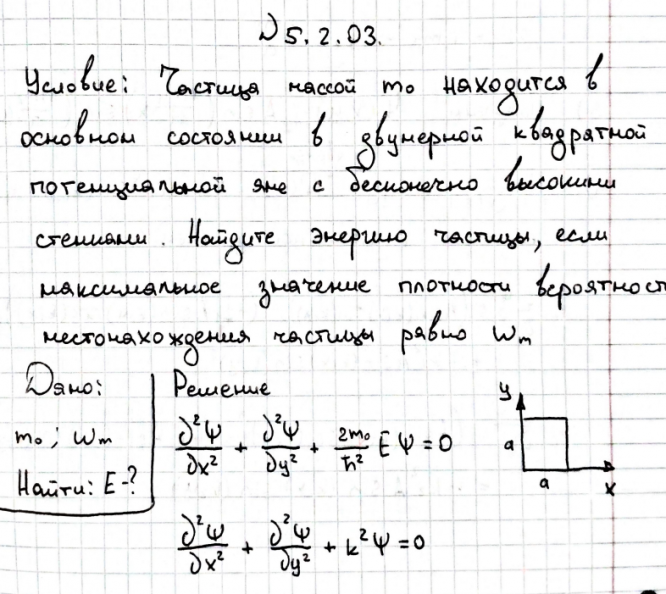 № 5.2.03.
Условие: Частица массой m₀ находится в
основном состоянии в двумерной квадратной
потенциальной яме с бесконечно высокими
стенками. Найдите энергию частицы, если
максимальное значение плотности вероятност
местонахождения частицы равно ωₘ
Дано:
m₀; ωₘ
Найти: E-?
Решение
∂²Ψ/∂x² + ∂²Ψ/∂y² + 2m₀/ħ² E Ψ = 0
∂²Ψ/∂x² + ∂²Ψ/∂y² + k²Ψ = 0
y
a
a
x